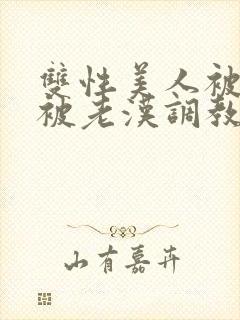 雙性美人被
被老漢調教
山有嘉卉